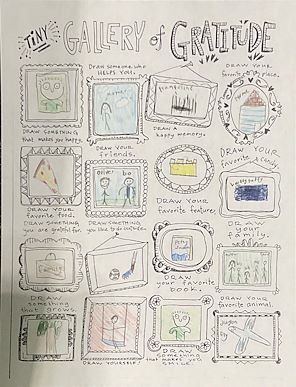 TINY GALLERY of GRATITUDE
DRAW SOMETHING
that makes you happy.
DRAW someone who
HELPS YOU.
MOMMY
DRAW a
happy memory.
DRAW YOUR
favorite
place.
DRAW YOUR
favorite food.
DRAW YOUR
friends.
oliver
bo
DRAW YOUR
favorite feature.
DRAW YOUR
favorite candy.
DRAW SOMETHING
you are grateful for.
FAMILY
DRAW SOMETHING
you like to do outside.
DRAW
your favorite
book.
DRAW
YOUR
family.
DRAW
something
that grows.
DRAW YOURSELF!
DRAW
something
that makes you
SMILE.
DRAW YOUR
favorite animal.
dragon
fly